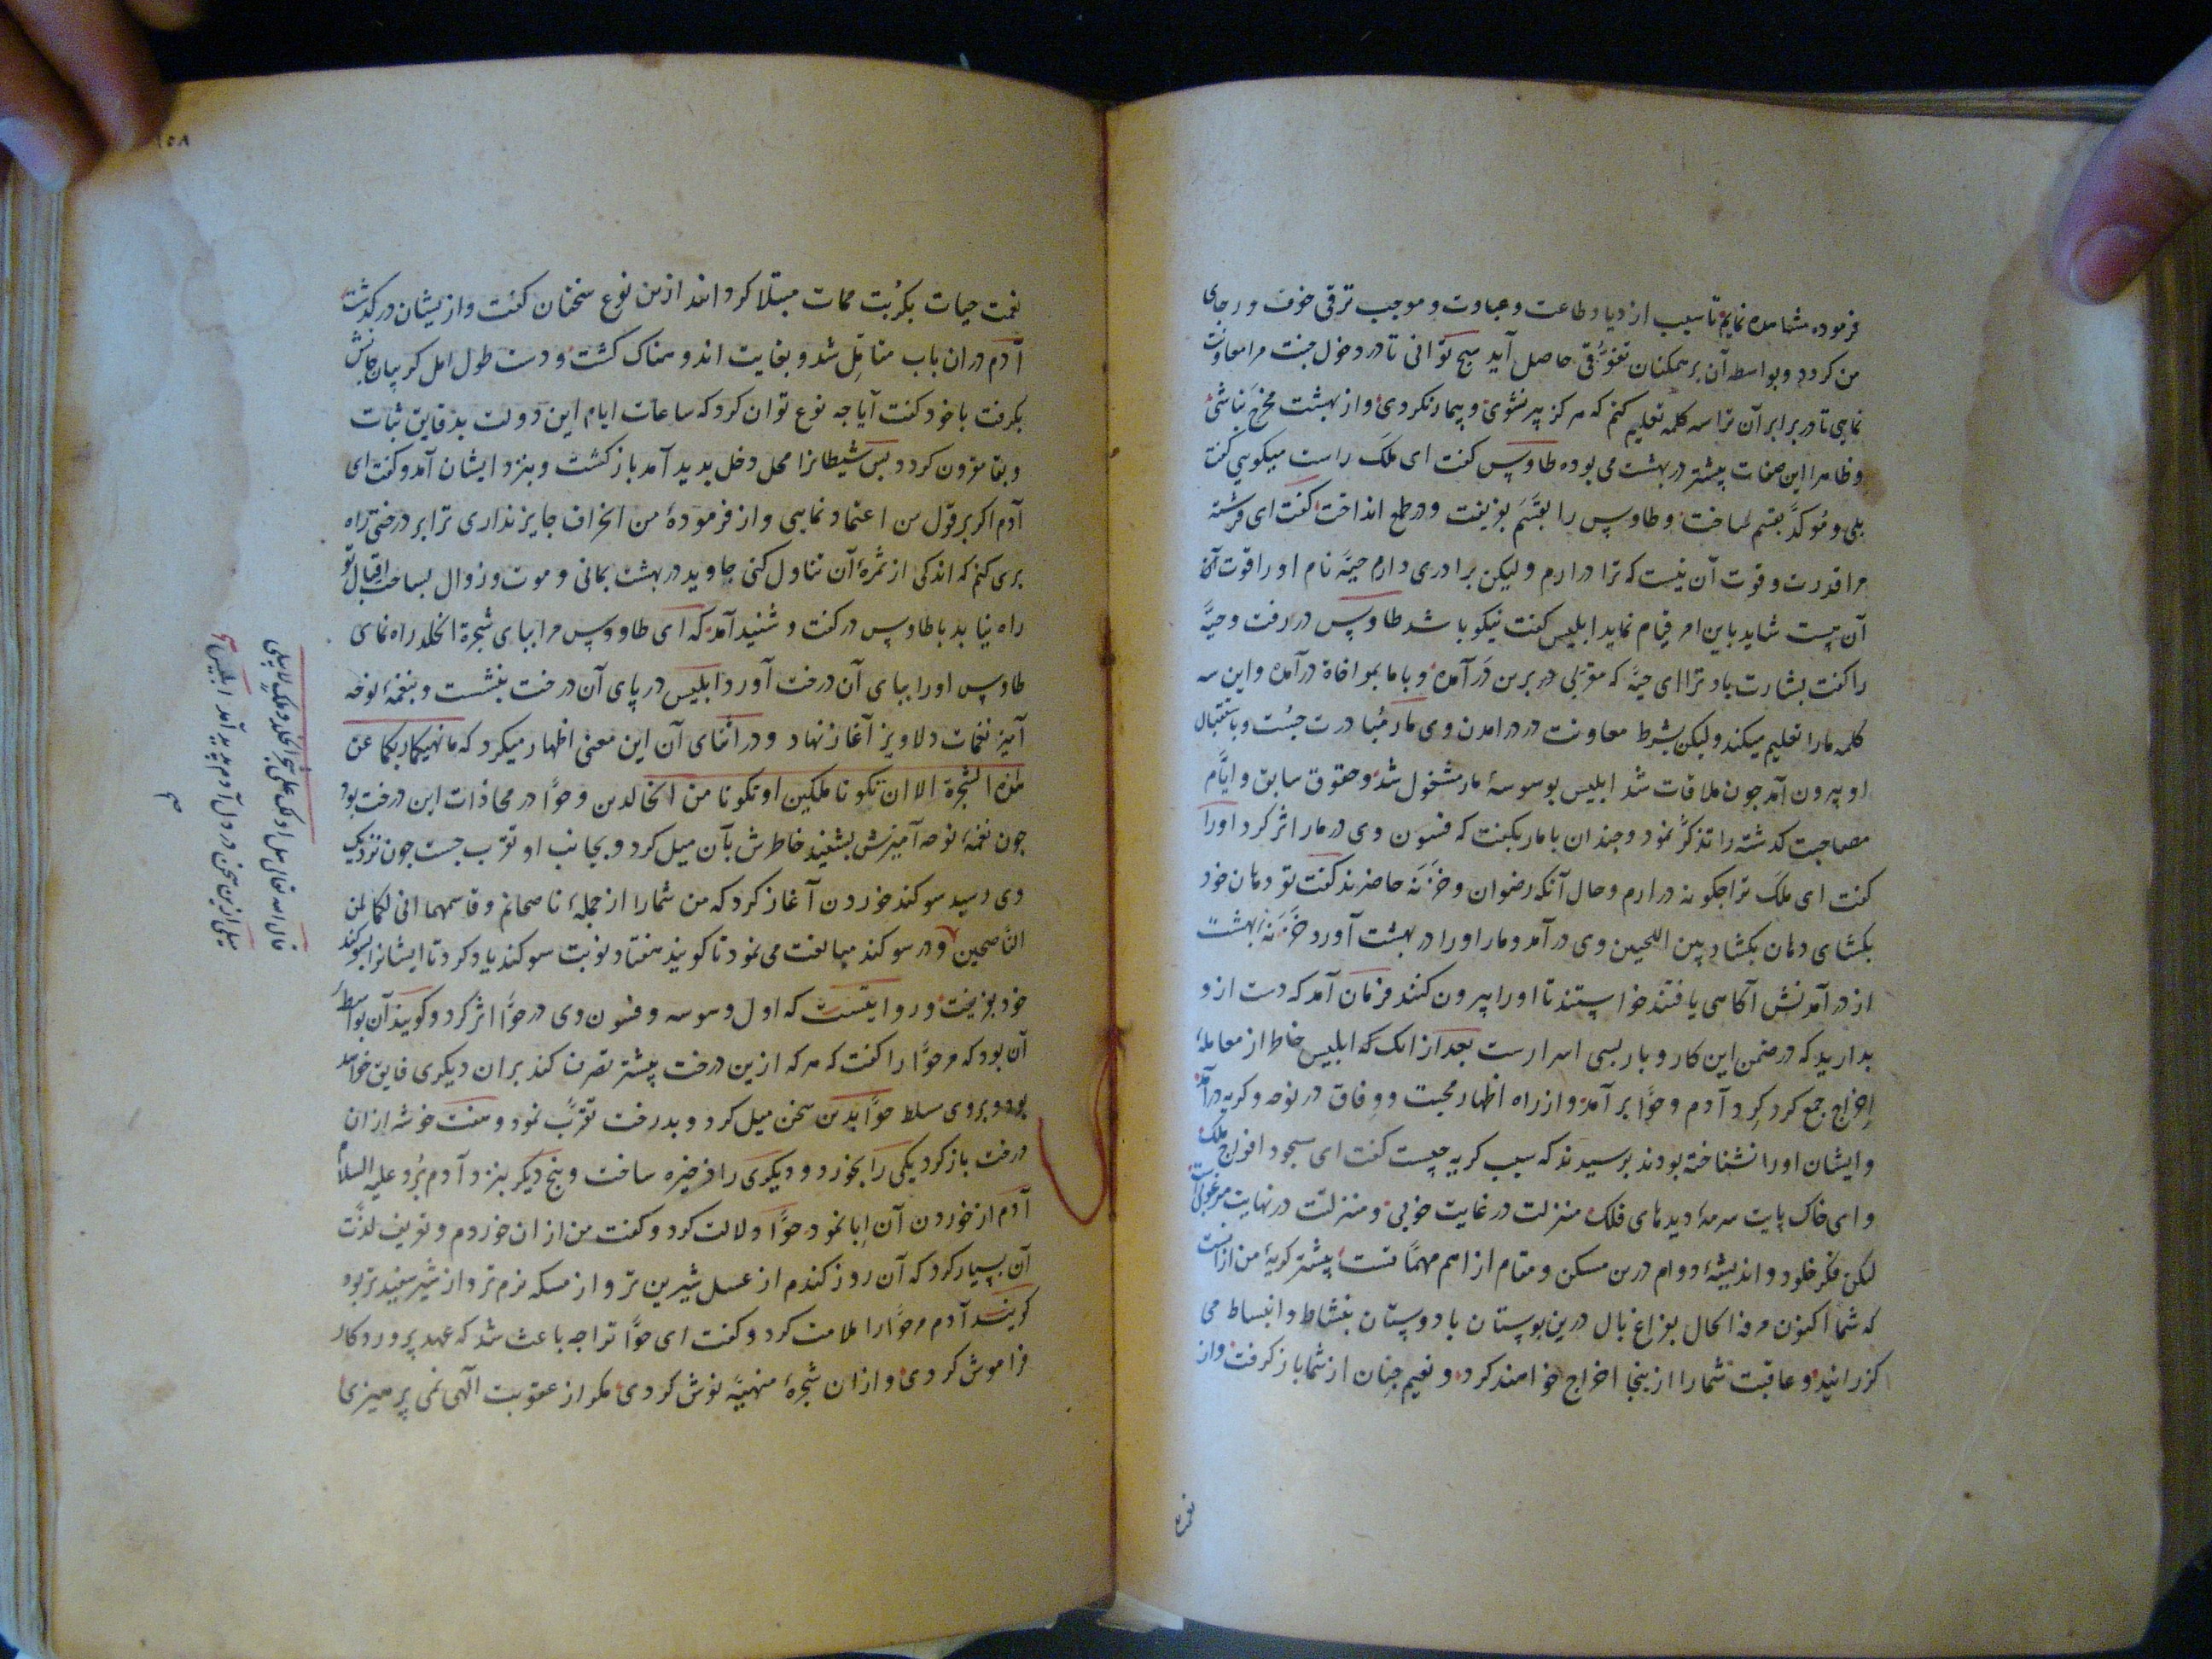 فرموده مشاهده نمایم تا سبب ازدیاد طاعت و عبادت و موجب ترقی خوف و رجای
من کردد و بواسطه آن بر همکنان تفوقی حاصل آید هیچ توانی تا در دخول جنت مرا معاونت
نمایی تا در برابر آن ترا سه کلمه تعلیم کنم که هرکز پیر نشوی و بیمار نکردی و از بهشت مخرج نباشی
و ظاهرا این صفات پیشتر در بهشت می بوده طاوس کفت ای ملک راست میکویی کفت
بلی و مؤکد بقسم ساخت و طاوس را بقسم بفریفت و در طمع انداخت کفت ای فرشته
مرا قدرت و قوت آن نیست که ترا در ارم ولیکن برادری دارم حیه نام او را قوت آن
آن هست شاید باین امر قیام نماید ابلیس کفت نیکو باشد طاوس در رفت و حیه
را کفت بشارت باد ترا ای حیه که مقربی در بر من در آمده و با ما بموافاة در آمده و این سه
کلمه ما را تعلیم میکند ولیکن بشرط معاونت در در امدن وی مار مبادرت جست و باستقبال
او بیرون آمد جون ملاقات شد ابلیس بوسوسهٔ مار مشغول شد و حقوق سابق و ایام
مصاحبت کذشته را تذکر نمود و جندان با مار بکفت که فسون وی در مار اثر کرد او را
کفت ای ملک ترا جکونه در ارم و حال آنکه رضوان و خزنه حاضرند کفت تو دهان خود
بکشای دهان بکشاد بین اللحیین وی در آمد و مار او را در بهشت آورد خزنهٔ بهشت
از در آمدنش آکاهی یافتند خواستند تا او را بیرون کنند فرمان آمد که دست از و
بدارید که در ضمن این کار و بار بسی اسرارست بعد از انک که ابلیس خاطر از معاملهٔ
اخراج جمع کرد کرد آدم و حوا بر آمد و از راه اظهار محبت و وفاق در نوحه و کریه در آمد
و ایشان او را نشناخته بودند برسیدند که سبب کریه چیست کفت ای سجود افواج ملک
و ای خاک پایت سرمهٔ دیدهای فلک منزلت در غایت خوبی و منزلت در نهایت مرغوبی است
لیکن فکر خلود و اندیشهٔ دوام درین مسکن و مقام از اهم مهماتست بیشتر کریهٔ من از انست
که شما اکنون مرفه الحال بفراغ بال درین بوستان با دوستان بنشاط و انبساط می
کزرانید و عاقبت شما را از ینجا اخراج خواهند کرد و نعیم جنان از شما باز کرفت و از
نعمت
١٥٨
نعمت حیات بکربت ممات مبتلا کرد انند ازین نوع سخنان کفت و از یشان در کذشت
آدم دران باب متامل شد و بغایت اندوهناک کشت و دست طول امل کریبان جانش
بکرفت با خود کفت آیا جه نوع توان کرد که ساعات ایام این دولت بدقایق ثبات
و بقا مقرون کردد پس شیطانرا محل دخل بدید آمد باز کشت و بنزد ایشان آمد و کفت ای
آدم اکر بر قول من اعتماد نمایی و از فرمودهٔ من انحراف جایز نداری ترا بر درختی راه
بری کنم که اندکی از ثمرهٔ آن تناول کنی جاوید در بهشت بمانی و موت و زوال بساحت اقبال تو
راه نیابد با طاوس در کفت و شنید آمد که ای طاووس مرا بپای شجرة الخلد راه نمای
طاوس او را بپای آن درخت آورد ابلیس در پای آن درخت بنشست و بنغمهٔ نوحه
آمیز نغمات دلاویز آغاز نهاد و در اثنای آن این معنی اظهار میکرد که ما نهیکما ربکما عن
هذه الشجرة الا ان تکونا ملکین او تکونا من الخالدین و حوا در محاذات این درخت بود
جون نغمهٔ نوحه آمیزش بشنید خاطرش بآن میل کرد و بجانب او تقرب جست جون نزدیک
وی رسید سوکند خوردن آغاز کرد که من شما را از جملهٔ ناصحانم و قاسمهما انی لکما لمن
الناصحین و در سوکند مبالغت می نمود تا کویند هفتاد نوبت سوکند یاد کرد تا ایشانرا بسوکند
خود بفریفت و روایتست که اول وسوسه و فسون وی در حوا اثر کرد و کویند آن بواسطه
آن بود که مر حوا را کفت که هر که ازین درخت پیشتر تصرف کند بر ان دیکری فایق خواهد
بود و بر وی مسلط حوا بدین سخن میل کرد و بدرخت تقرب نمود و هفت خوشه از ان
درخت باز کرد یکی را بخورد و دیکری را ذخیره ساخت و پنج دیکر بنزد آدم برد علیه السلام
آدم از خوردن آن ابا نمود حوا دلالت کرد و کفت من از ان خوردم و تعریف لذت
آن بسیار کرد که آن روز کندم از عسل شیرین تر و از مسکه نرم تر و از شیر سفید تر بود
کویند آدم مر حوا را ملامت کرد و کفت ای حوا ترا جه باعث شد که عهد پروردکار
فراموش کردی و از ان شجرهٔ منهیه نوش کردی مکر از عقوبت الهی نمی پرهیزی
قال الله تعالی هل ادلک علی شجرة الخلد و ملک لا یبلی
میلی ازین سخن در دل آدم پدید آمد ابلیس